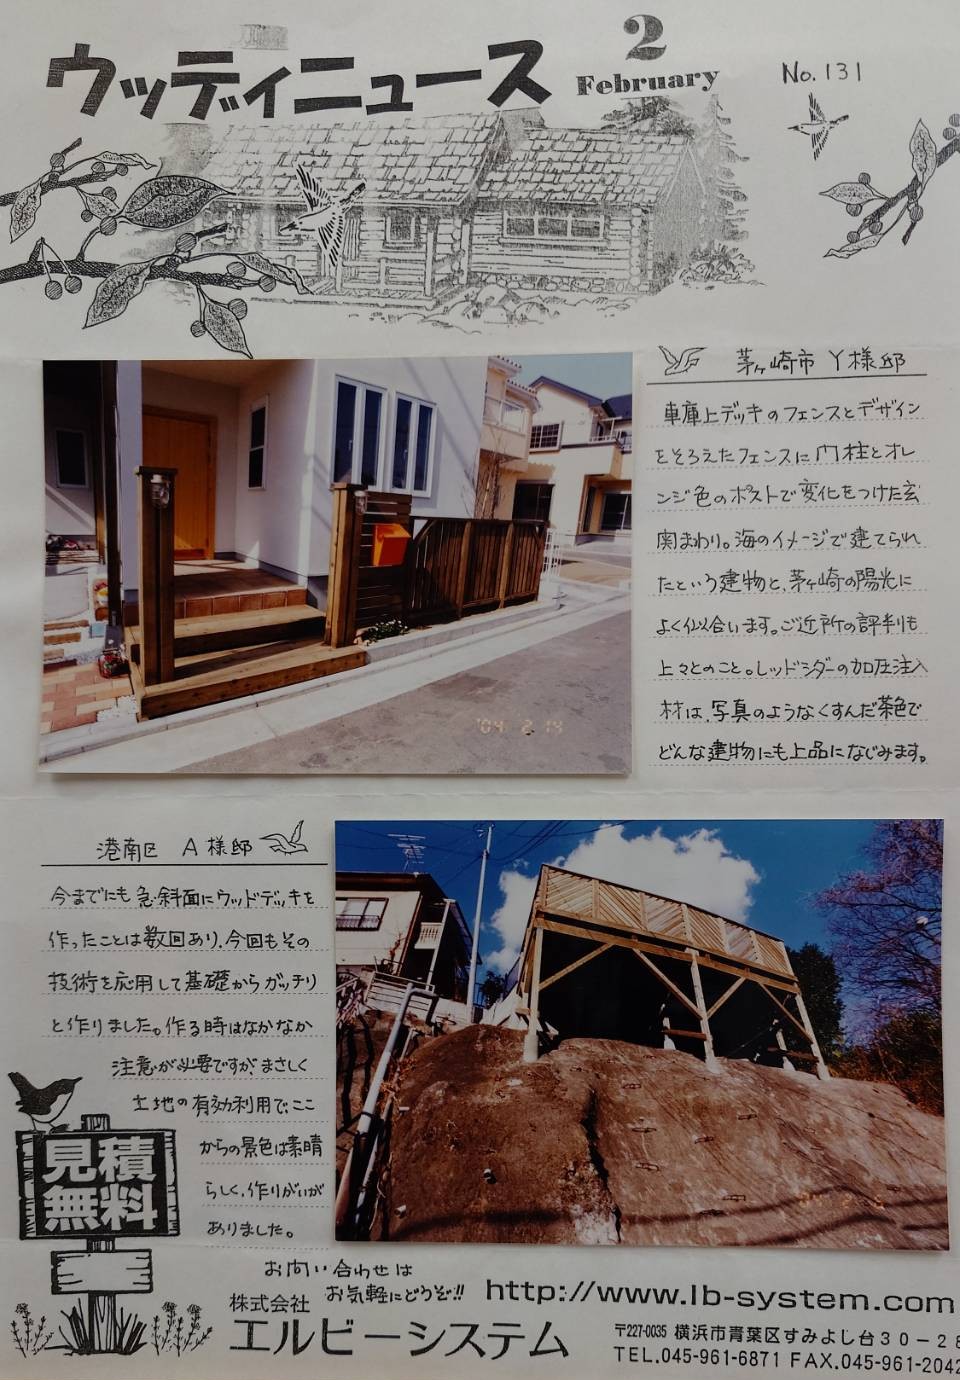 ウッディニュース
2
February
No.131
茅ヶ崎市 Y様邸
車庫上デッキのフェンスとデザイン
をそろえたフェンスに門柱とオレ
ンジ色のポストで変化をつけた玄
関まわり。海のイメージで建てられ
たという建物と、茅ヶ崎の陽光に
よく似合います。ご近所の評判も
上々とのこと。レッドシダーの加圧注入
材は、写真のようなくすんだ茶色で
どんな建物にも上品になじみます。
'04 2 14
港南区 A様邸
今までにも急斜面にウッドデッキを
作ったことは数回あり、今回もその
技術を応用して基礎からガッチリ
と作りました。作る時はなかなか
注意が必要ですが、まさしく
土地の有効利用で、ここ
からの景色は素晴
らしく、作りがいが
ありました。
見積
無料
お問い合わせは
お気軽にどうぞ!!
http://www.lb-system.com
株式会社
エルビーシステム
〒227-0035 横浜市青葉区すみよし台30-28
TEL.045-961-6871 FAX.045-961-2042